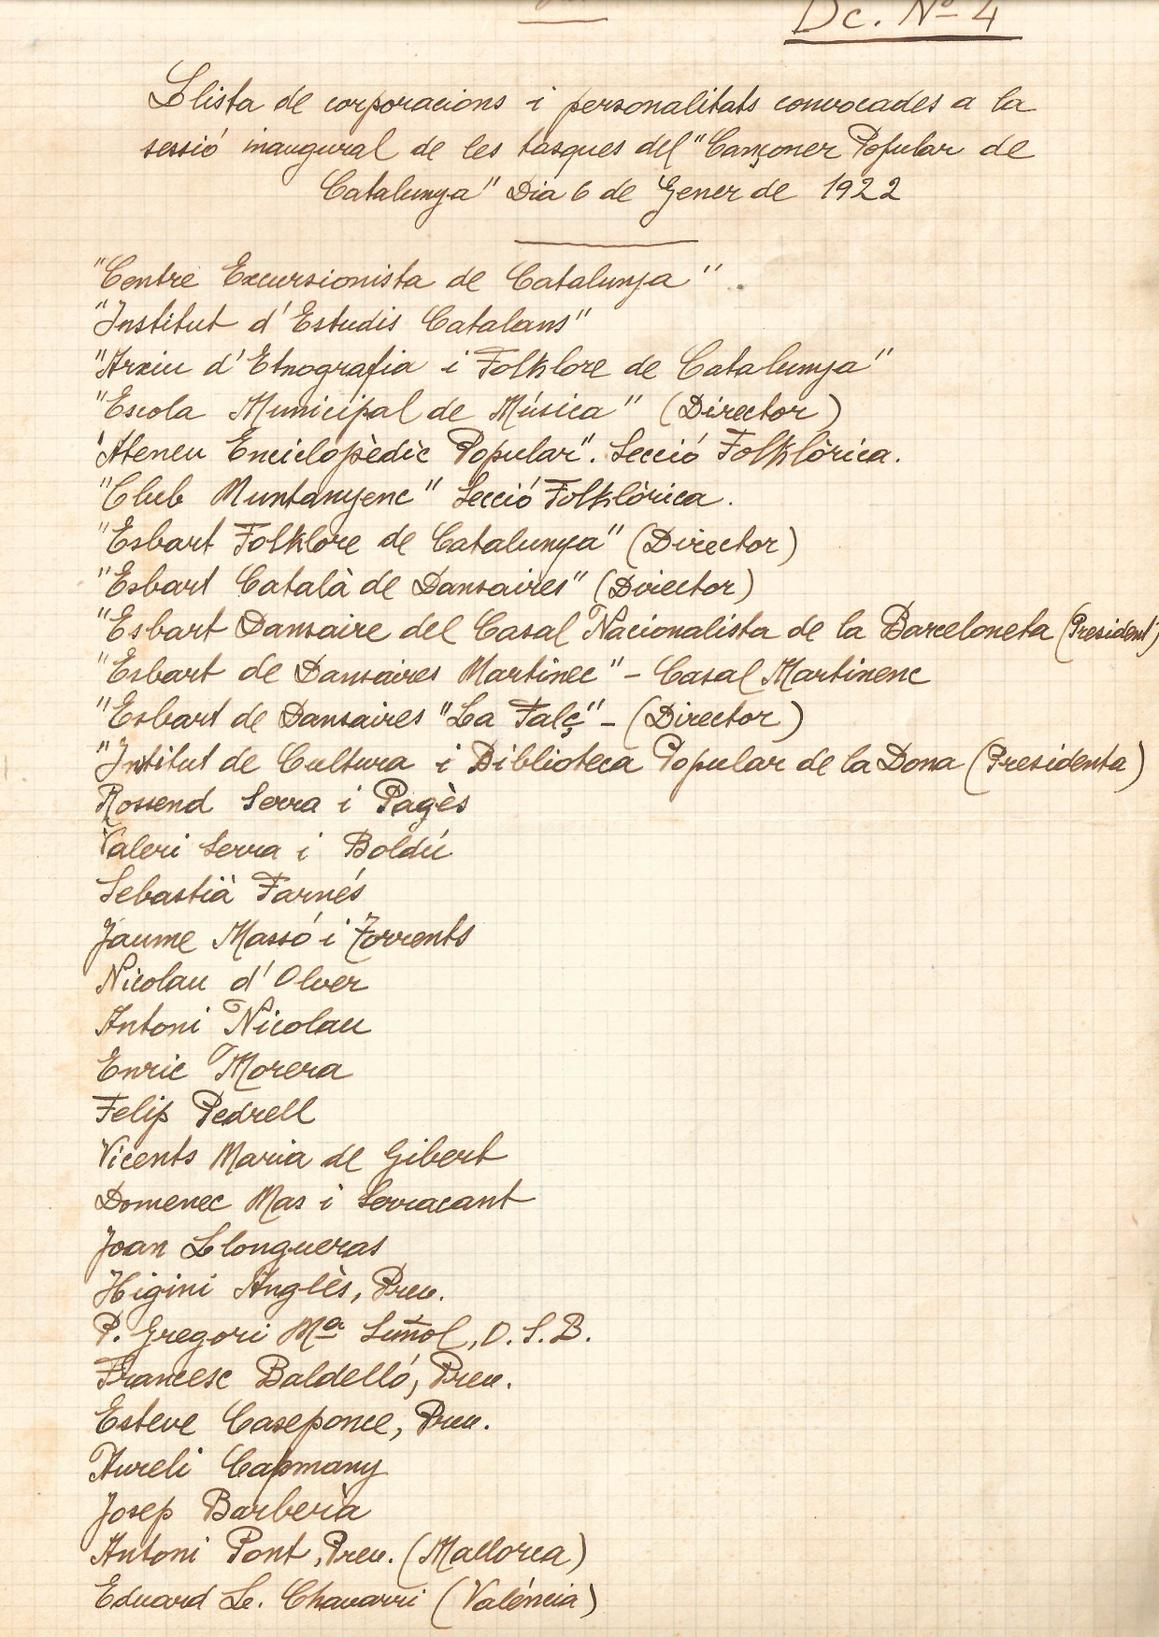 Dc. Nº 4
Llista de corporacions i personalitats convocades a la
sessió inaugural de les tasques del "Cançoner Popular de
Catalunya" Dia 6 de Gener de 1922
"Centre Excursionista de Catalunya"
"Institut d'Estudis Catalans"
"Arxiu d'Etnografia i Folklore de Catalunya"
"Escola Municipal de Música" (Director)
"Ateneu Enciclopèdic Popular". Secció Folklòrica.
"Club Muntanyenc" Secció Folklòrica.
"Esbart Folklore de Catalunya" (Director)
"Esbart Català de Dansaires" (Director)
"Esbart Dansaire del Casal Nacionalista de la Barceloneta (President)
"Esbart de Dansaires Martinec" - Casal Martinenc
"Esbart de Dansaires "La Falç" - (Director)
"Intitut de Cultura i Biblioteca Popular de la Dona (Presidenta)
Rossend Serra i Pagès
Valeri Serra i Boldú
Sebastià Farnés
Jaume Massó i Torrents
Nicolau d'Olver
Antoni Nicolau
Enric Morera
Felip Pedrell
Vicents Maria de Gibert
Domenec Mas i Serracant
Joan Llongueras
Higini Anglès, Prev.
P. Gregori Mª Suñol, O.S.B.
Francesc Baldelló, Prev.
Esteve Caseponce, Prev.
Aureli Capmany
Josep Barberià
Antoni Pont, Prev. (Mallorca)
Eduard L. Chavarri (València)